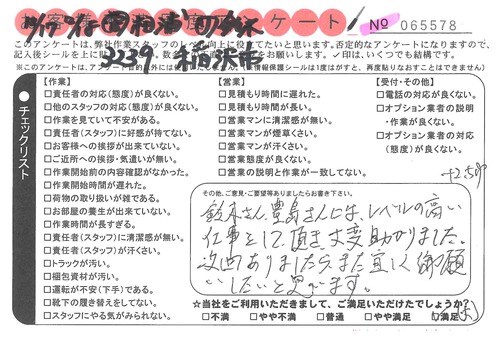 No 065578
このアンケートは、弊社作業スタッフのレベル向上に役立てたいと思います。否定的なアンケートになりますので、
※このアンケートは、アンケート目的以外には使用いたしません。
チェックリスト
【作業】
□責任者の対応(態度)が良くない。
□他のスタッフの対応(態度)が良くない。
□作業を見ていて不安がある。
□責任者(スタッフ)に好感が持てない。
□お客様への挨拶が出来ていない。
□ご近所への挨拶・気遣いが無い。
□作業開始前の内容確認がなかった。
□作業開始時間が遅れた。
□荷物の取り扱いが雑である。
□お部屋の養生が出来ていない。
□作業時間が長すぎる。
□責任者(スタッフ)に清潔感が無い。
□責任者(スタッフ)が汗くさい。
□トラックが汚い。
□梱包資材が汚い。
□運転が不安(下手)である。
□靴下の履き替えをしてない。
□スタッフにやる気がみられない。
【営業】
□見積もり時間に遅れた。
□見積もり時間が長い。
□営業マンに清潔感が無い。
□営業マンが煙草くさい。
□営業マンが汗くさい。
□営業態度が良くない。
□営業の説明と作業が一致してない。
【受付・その他】
□電話の対応が良くない。
□オプション業者の説明
・作業が良くない。
□オプション業者の対応
(態度)が良くない。
その他、ご意見・ご要望等ありましたらお書き下さい。
鈴木さん、豊島さんには、レベルの高い
仕事をして頂き大変助かりました。
次回ありましたら、また宜しく御願
いしたいと思います。
☆当社をご利用いただきまして、ご満足いただけたでしょうか?
□不満 □やや不満 □普通 □やや満足 □満足